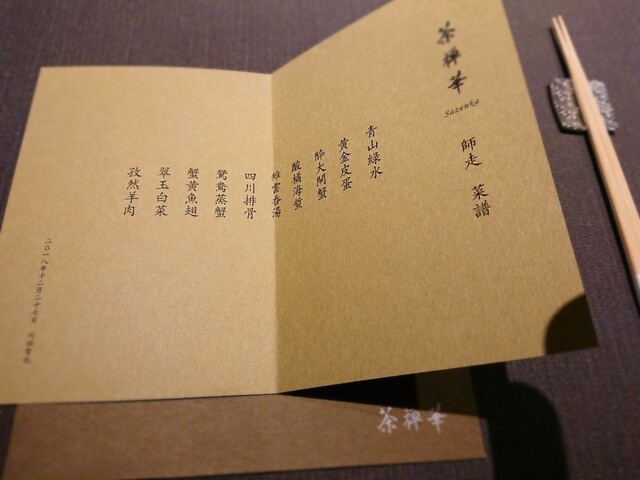 茶禅華
Sazenka
師走 菜譜
青山緑水
黄金皮蛋
酔大閘蟹
酸橘海蜇
雉雲呑湯
四川排骨
鴛鴦蒸蟹
蟹黄魚翅
翠玉白菜
孜然羊肉
二〇一八年十二月二十七日 川田智也
茶禅華